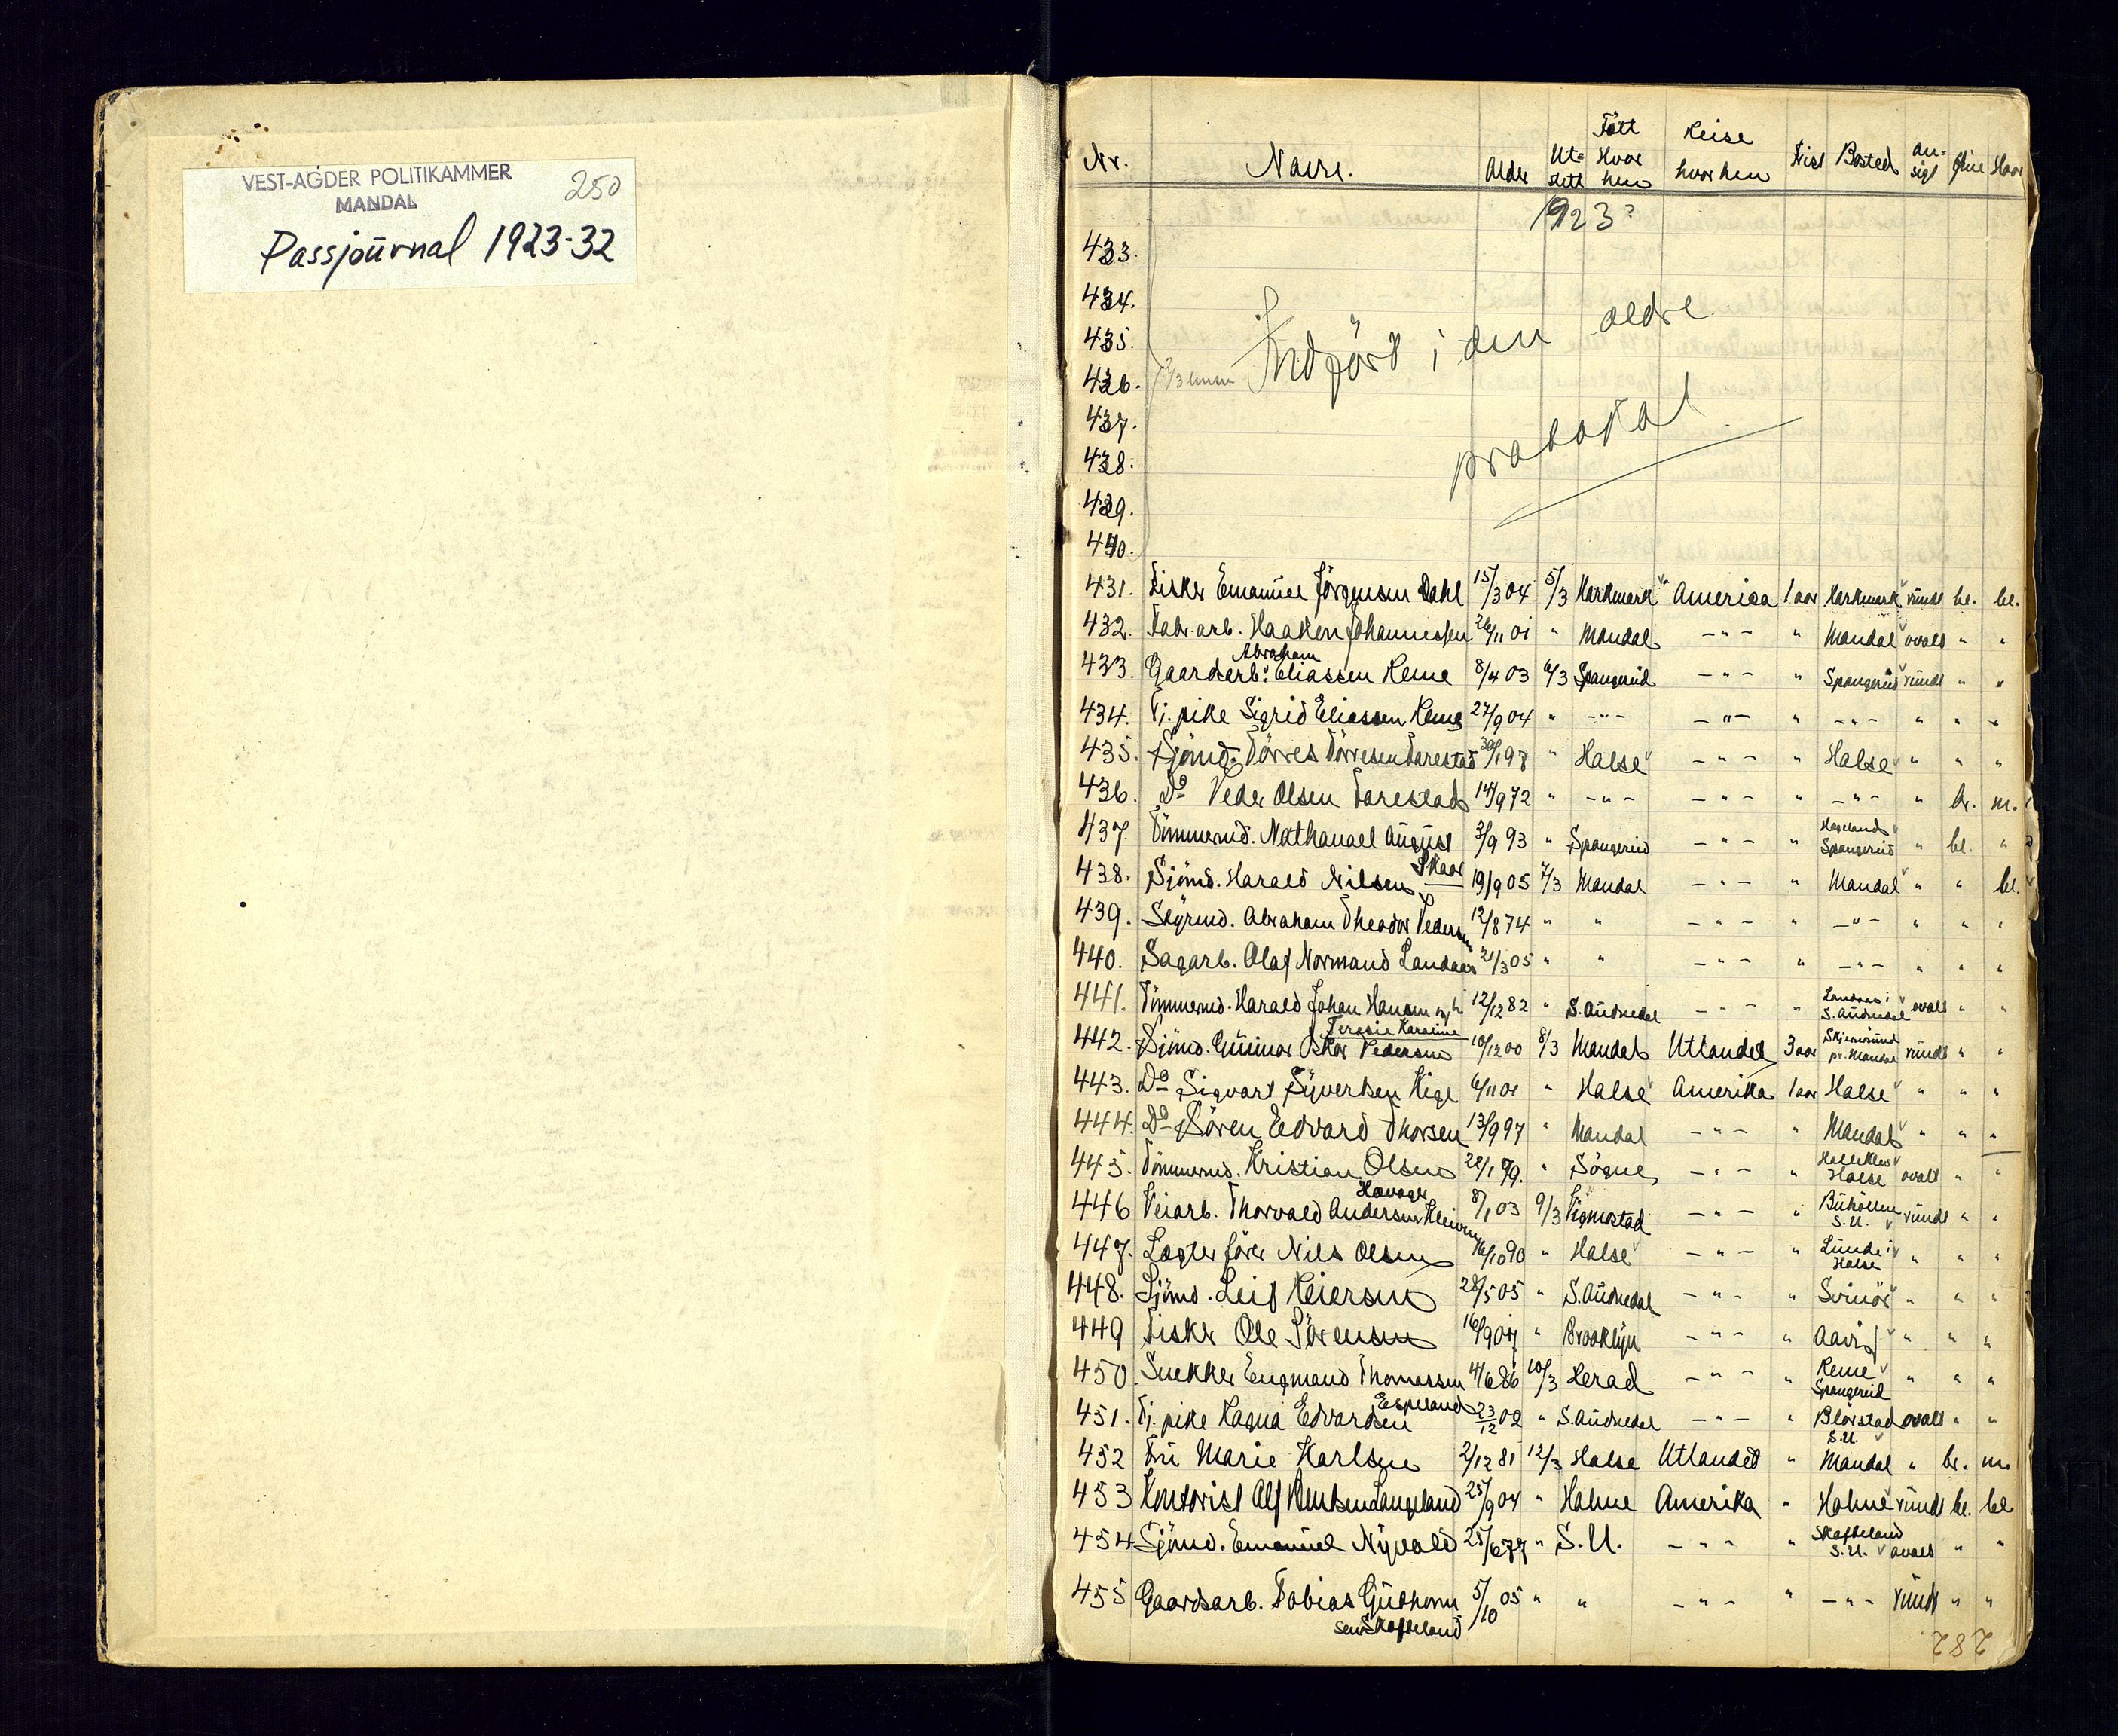 VEST-AGDER POLITIKAMMER 250
MANDAL
Passjournal 1923-32
Nr. Navn. Alder Ut-stett Fött Hvor hen Reise hvorhen Frist Bosted an-sigt Öine Haar
1923?
433.
434.
435. Indfört i den ældre
436.
437.
438. protokol
439.
440.
431. Fisker Emanuel Jörgensen Dahl 15/3 04 5/3 Harkmark America 1 aar Harkmark rundt bl. bl.
432. Fabr.arb. Haaken Johannessen 26/11 01 " Mandal -"- " Mandal ovalt " "
433. Gaardsarb. Abraham Eliassen Reme 8/4 03 6/3 Spangereid -"- " Spangereid rundt " "
434. Tj. pike Sigrid Eliassen Reme 27/9 04 " -"- -"- " -"- " " "
435. Sjömd. Törres Törresen Tarestad 30/1 98 " Halse -"- " Halse " " "
436. Do Peder Olsen Tarestad 14/9 72 " -"- -"- " -"- " br. m.
437. Tömmermd. Nathanael August Skaar 3/9 93 " Spangereid -"- " Hageland Spangereid " bl. "
438. Sjömd. Harald Nilsen 19/9 05 7/3 Mandal -"- " Mandal " " bl.
439. Styrmd. Abraham Theodor Pedersen 12/8 74 " " -"- " -"- " " "
440. Sagarb. Olaf Normand Landaas 21/3 05 " " -"- " -"- " " "
441. Tömmermd. Harald Johan Hansen 12/12 82 " S. Audnedal -"- " Landaas i S. Audnedal ovalt " "
Terasie Karoline
442. Sjömd. Gunnar Oskar Pedersen 10/12 00 8/3 Mandal Utlandet 3 aar Skjernöund pr. Mandal rundt " "
443. Do Sigvart Syvertsen Kige 6/11 01 " Halse Amerika 1 aar Halse " " "
444. Do Sören Edvard Thorsen 13/9 97 " Mandal -"- " Mandal " " "
445. Tömmermd. Kristian Olsen 28/1 79. " Sögne -"- " Halse ovalt " "
446 Veiarb. Thorvald Andersen Kleiven 8/1 03 9/3 Vigmostad -"- " S.U. rundt " "
447. Lægterförer Nils Olsen 16/10 90 " Halse -"- " Lunde i Halse " " "
448. Sjömd. Leif Reiersen 28/5 05 " S. Audnedal -"- " Svinör " " "
449 Fisker Ole Sörensen 16/9 04 " Brooklyn -"- " " " "
450 Snekker Engmand Thomassen 4/6 86 10/3 Herad -"- " Reme Spangereid " " "
451. Tj. pike Ragna Edvardsen Espeland 23/12 02 " S. Audnedal -"- " Blörstad S.U. ovalt " "
452 Fru Marie Karlsen 2/12 81 12/3 Halse Utlandet " Mandal " br. m.
453 Kontorist Alf Bentsen Langeland 25/9 04 " Holme Amerika " Holme rundt bl. bl
454 Sjömd. Emanuel Nyvold 25/6 77 " S.U. -"- " Skofteland S.U. ovalt " "
455 Gaardsarb. Tobias Guthorm 5/10 05 " " -"- " -"- rundt " "
sen Skofteland
282